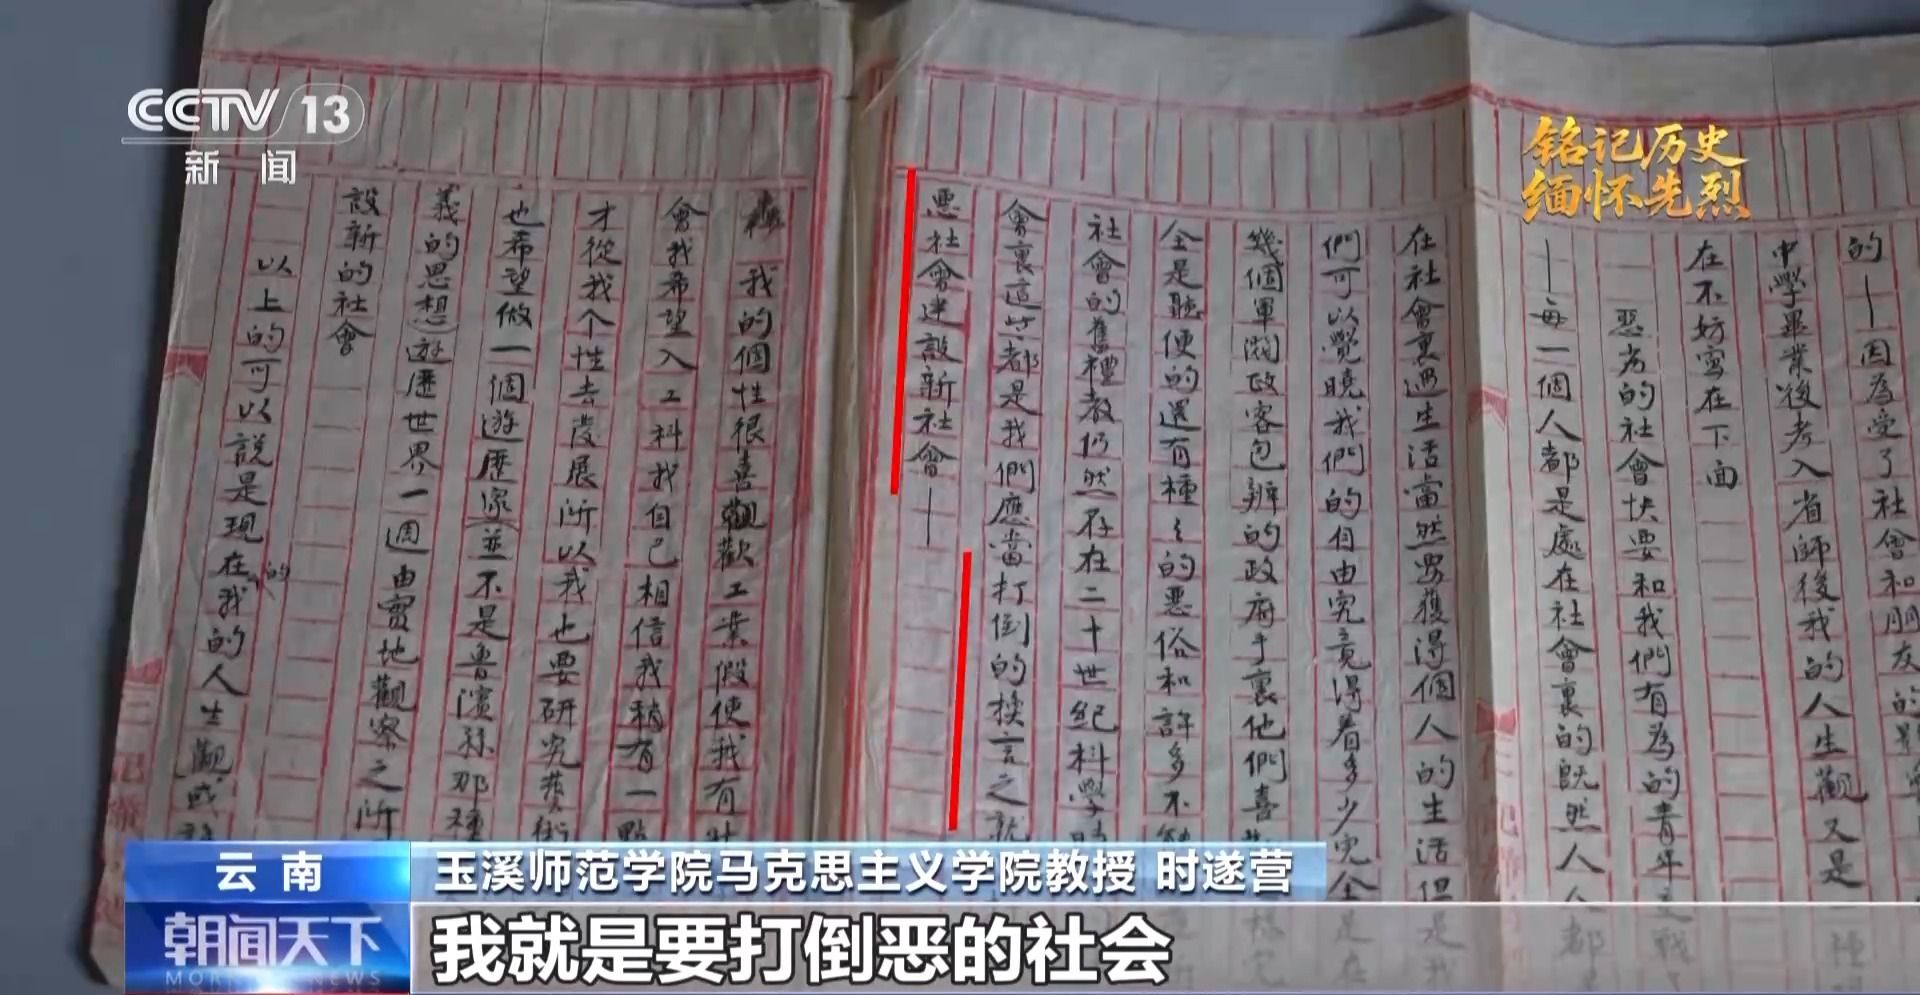 CCTV 13
新闻
铭记历史
缅怀先烈
的—因為受了社會和朋友的影
中學畢業後考入省師後我的人生觀又是一種
在不妨寫在下面
惡劣的社會快要和我們有為的青年交戰
—每一個人都是處在社會裏的既然人人都
在社會裏過生活當然要獲得個人的生活但是我
們可以覺曉我們的自由究竟得着多少完全是在
幾個軍閥政客包辦的政府手裏他們喜
全是聽便的還有種々的惡俗和許多不
社會的舊禮教仍然存在二十世紀科學
會裏這些都是我們應當打倒的換言之就
惡社會建設新社會—
我的個性很喜觀歡工業假使我有
會我希望入工科我自己相信我稍有一點
才從我个性去發展所以我也要研究藝術
也希望做一個遊歷家(並不是魯濱孫那種
義的思想)遊歷世界一週由實地觀察之所
設新的社會
以上的可以說是現在我的人生觀或
的
云南
玉溪师范学院马克思主义学院教授 时遂营
朝闻天下
MORNING NEWS
我就是要打倒恶的社会